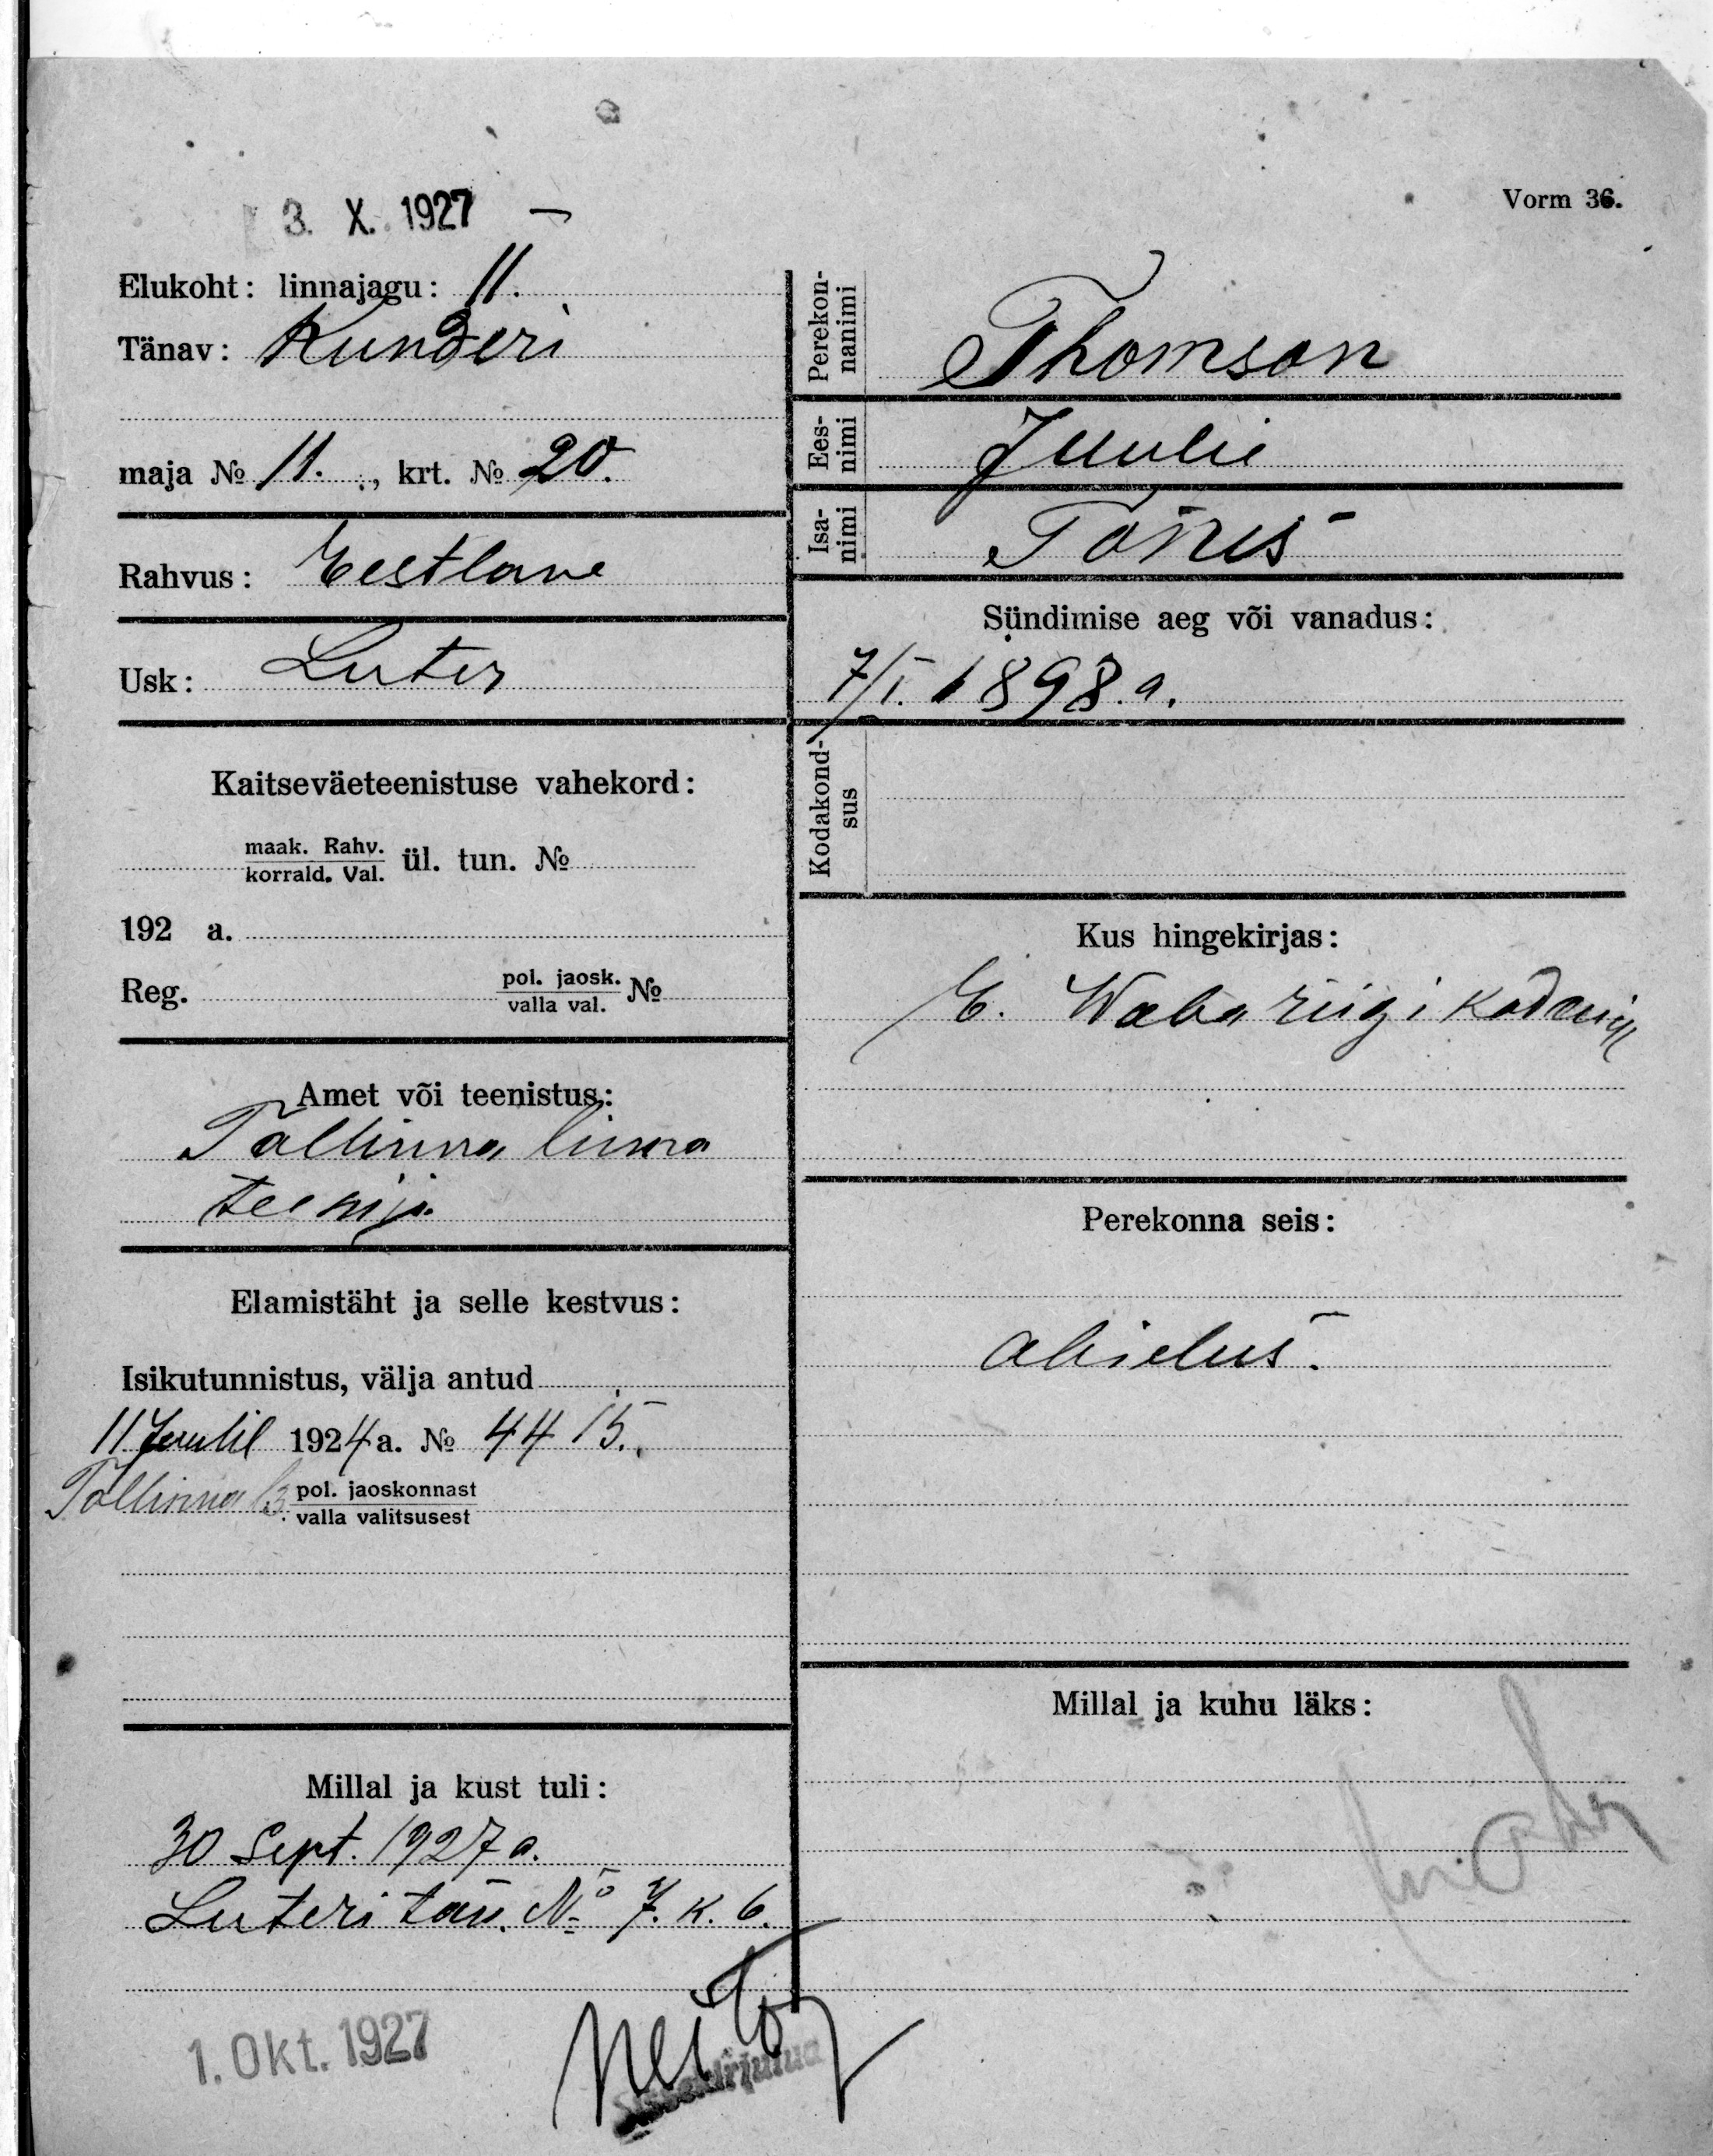 3. X. 1927 –
Vorm 36.
Elukoht: linnajagu: II.
Tänav: Kunderi
maja № 11., krt. № 20.
Rahvus: Eestlane
Usk: Luter
Kaitseväeteenistuse vahekord:
maak. Rahv.
korrald. Val. ül. tun. №
192 a.
Reg. pol. jaosk. №
valla val.
Amet või teenistus:
Tallinna linna
teenija
Elamistäht ja selle kestvus:
Isikutunnistus, välja antud
11 Juulil 1924 a. № 4415.
Tallinna 3. pol. jaoskonnast
valla valitsusest
Millal ja kust tuli:
30 Sept. 1927 a.
Luteri tän. № 7. k. 6.
1. Okt. 1927
Sissekirjutud
Perekonnanimi
Thomson
Eesnimi
Juulie
Isanimi
Tõnis
Sündimise aeg või vanadus:
7/I. 1898. a.
Kodakondsus
Kus hingekirjas:
E. Wabariigi kodanik
Perekonna seis:
abielus.
Millal ja kuhu läks: